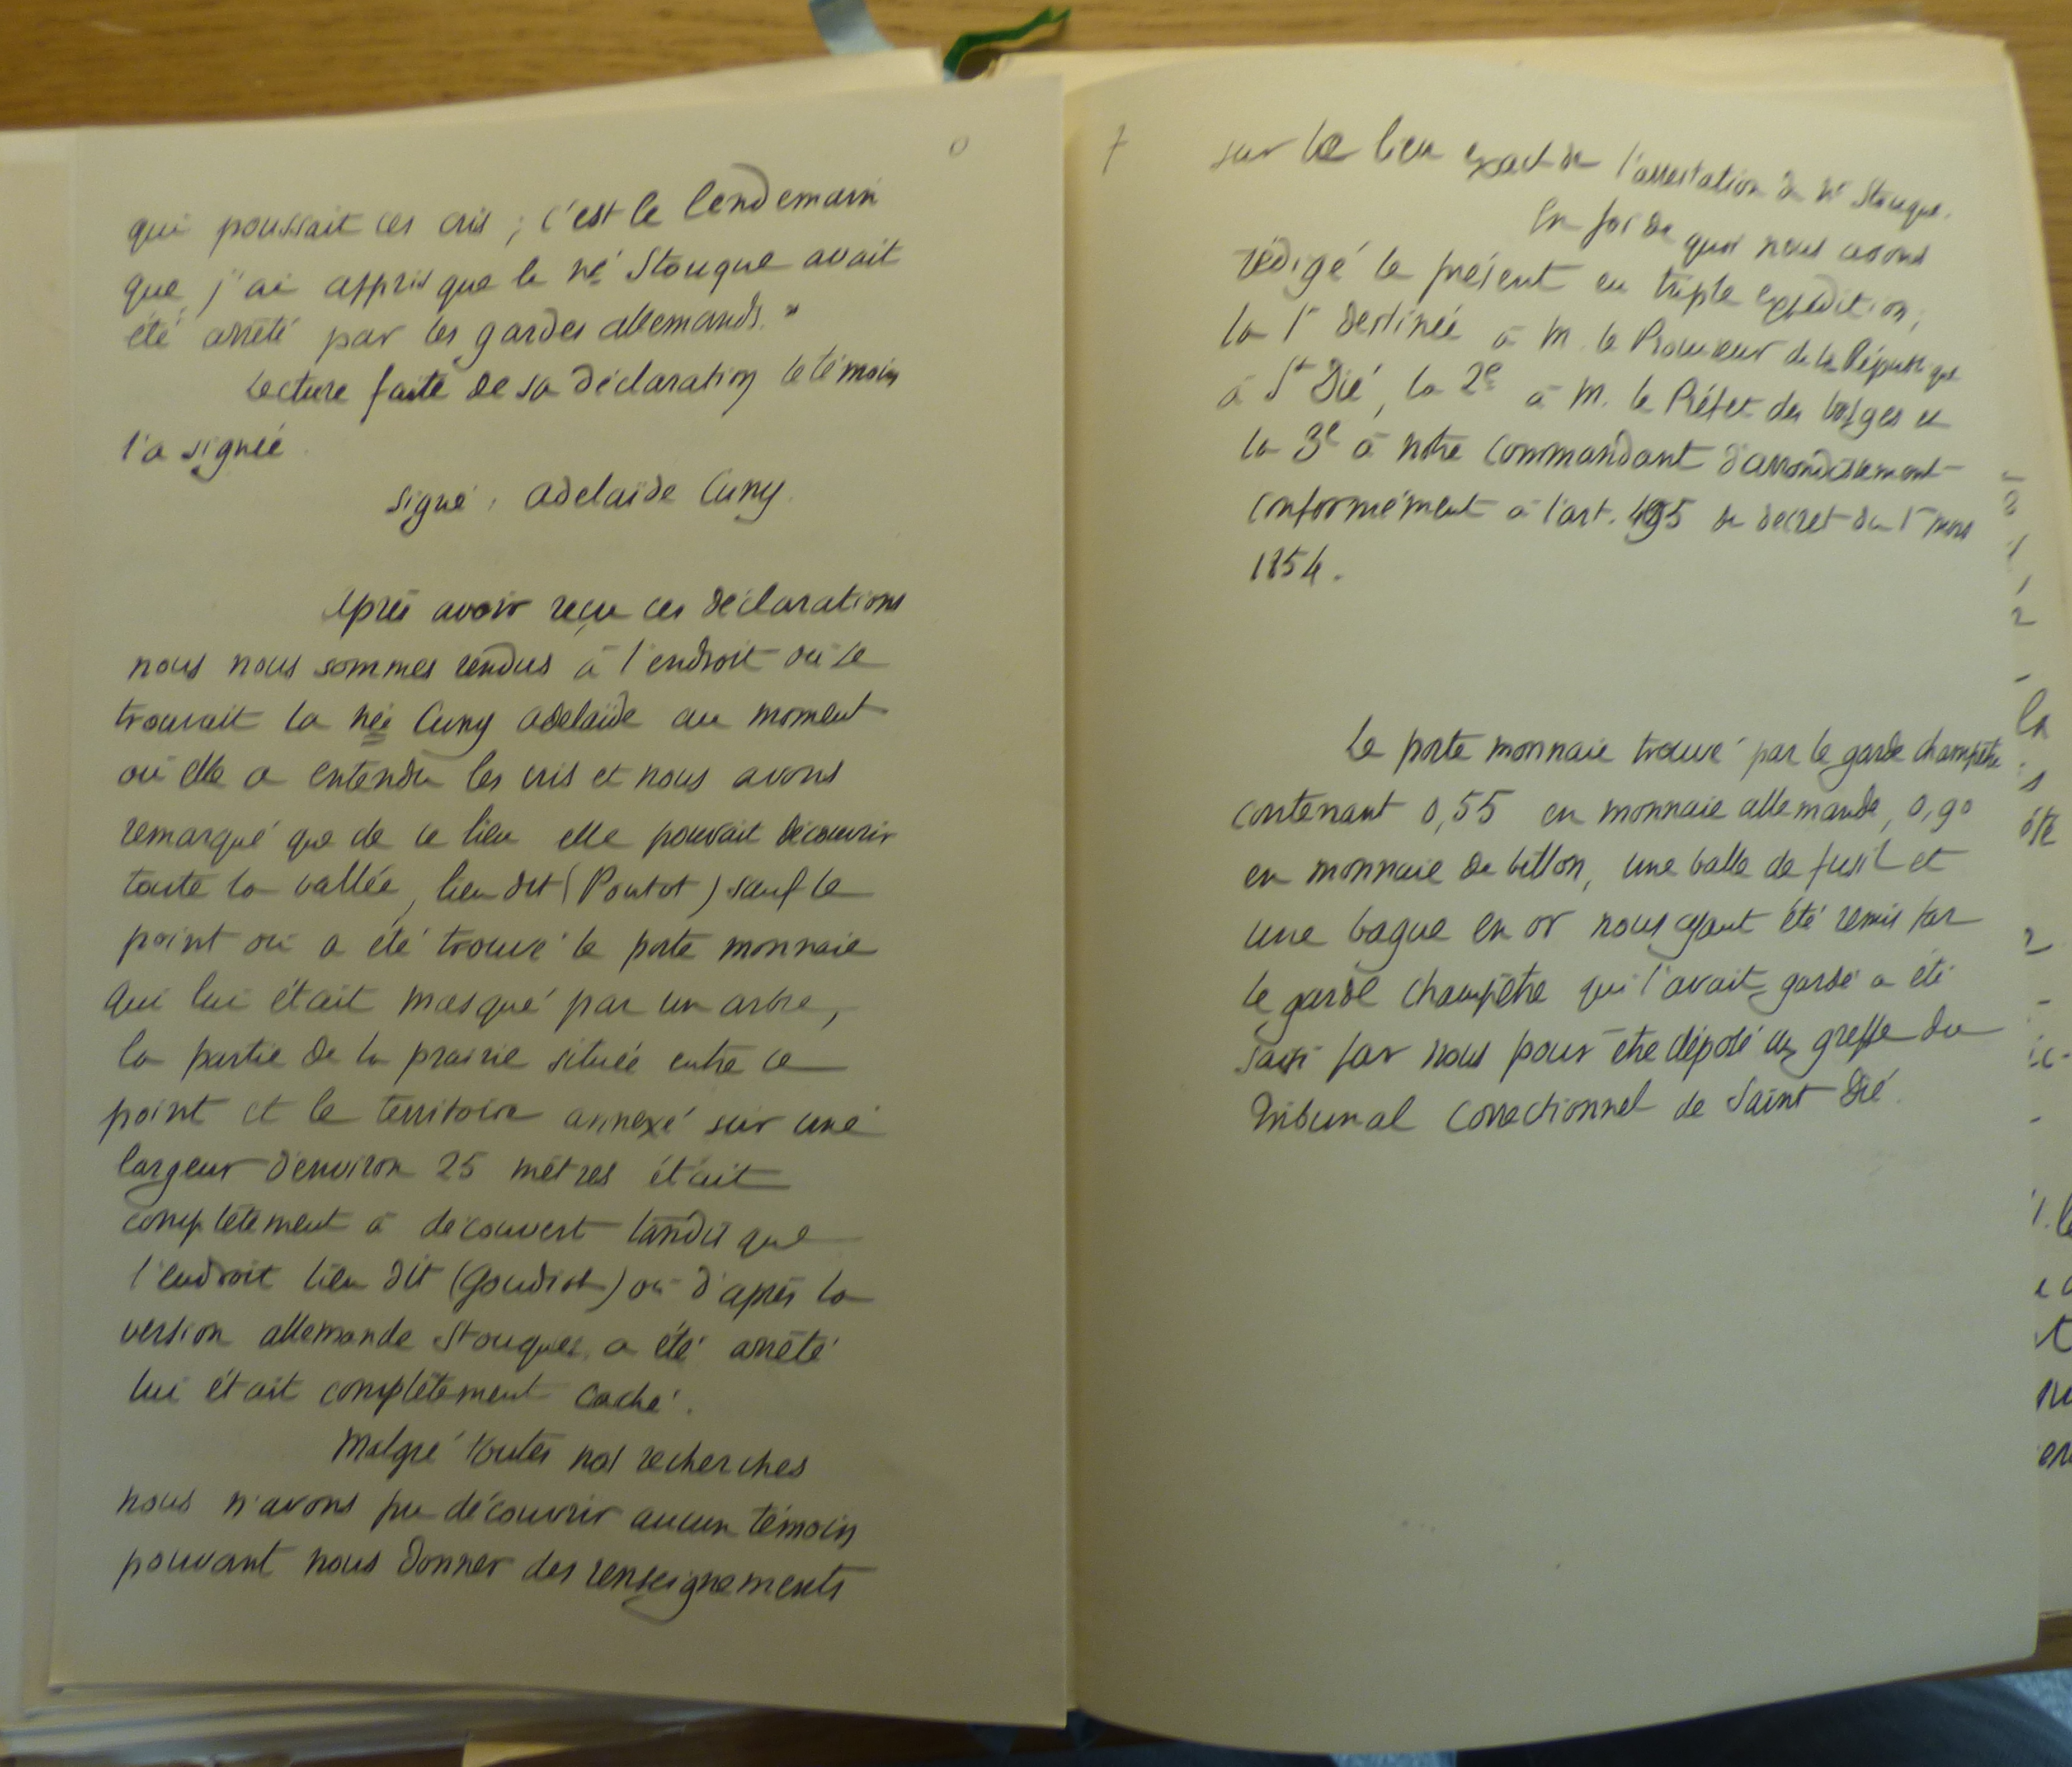 qui poussait ces cris ; c'est le lendemain
que j'ai appris que le né Stouque avait
été arrêté par les gardes allemands. "
Lecture faite de sa déclaration le témoin
l'a signée
signé, Adelaïde Cuny.
Après avoir reçu ces déclarations
nous nous sommes rendus à l'endroit où se
trouvait la née Cuny Adelaïde au moment
où elle a entendu les cris et nous avons
remarqué que de ce lieu elle pouvait découvrir
toute la vallée, lieu dit (Poutot) sauf le
point où a été trouvé le porte monnaie
qui lui était masqué par un arbre,
la partie de la prairie située entre ce
point et le territoire annexé sur une
largeur d'environ 25 mètres était
complètement à découvert tandis que
l'endroit lieu dit (Goudiot) où d'après la
version allemande Stouque a été arrêté
lui était complètement caché.
Malgré toutes nos recherches
nous n'avons pu découvrir aucun témoin
pouvant nous donner des renseignements
7
sur le lieu exact de l'arrestation du né Stouque.
En foi de quoi nous avons
rédigé le présent en triple expédition,
la 1e destinée à M. le Procureur de la République
à St Dié, la 2e à M. le Préfet des Vosges et
la 3e à notre commandant d'arrondissement
conformément à l'art. 495 du decret du 1er mars
1854.
Le porte monnaie trouvé par le garde champêtre
contenant 0,55 en monnaie allemande, 0,90
en monnaie de billon, une balle de fusil et
une bague en or nous ayant été remis par
le garde champêtre qui l'avait gardé a été
saisi par nous pour être déposé au greffe du
Tribunal Correctionnel de Saint Dié.